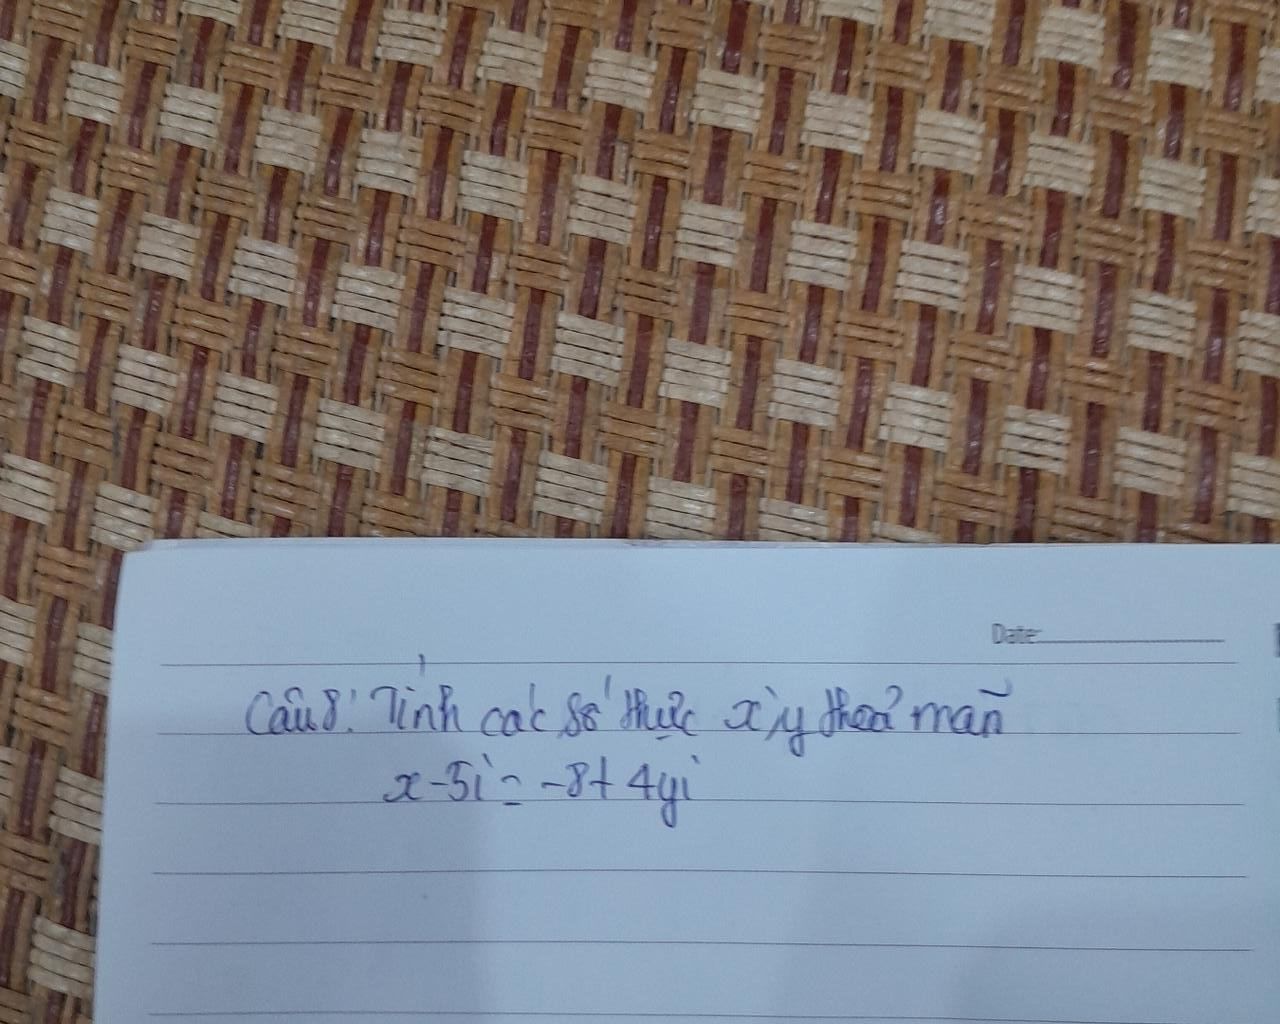 Date:
Câu 8: Tính các số thực x, y thoả mãn
x - 5i = -8 + 4yi